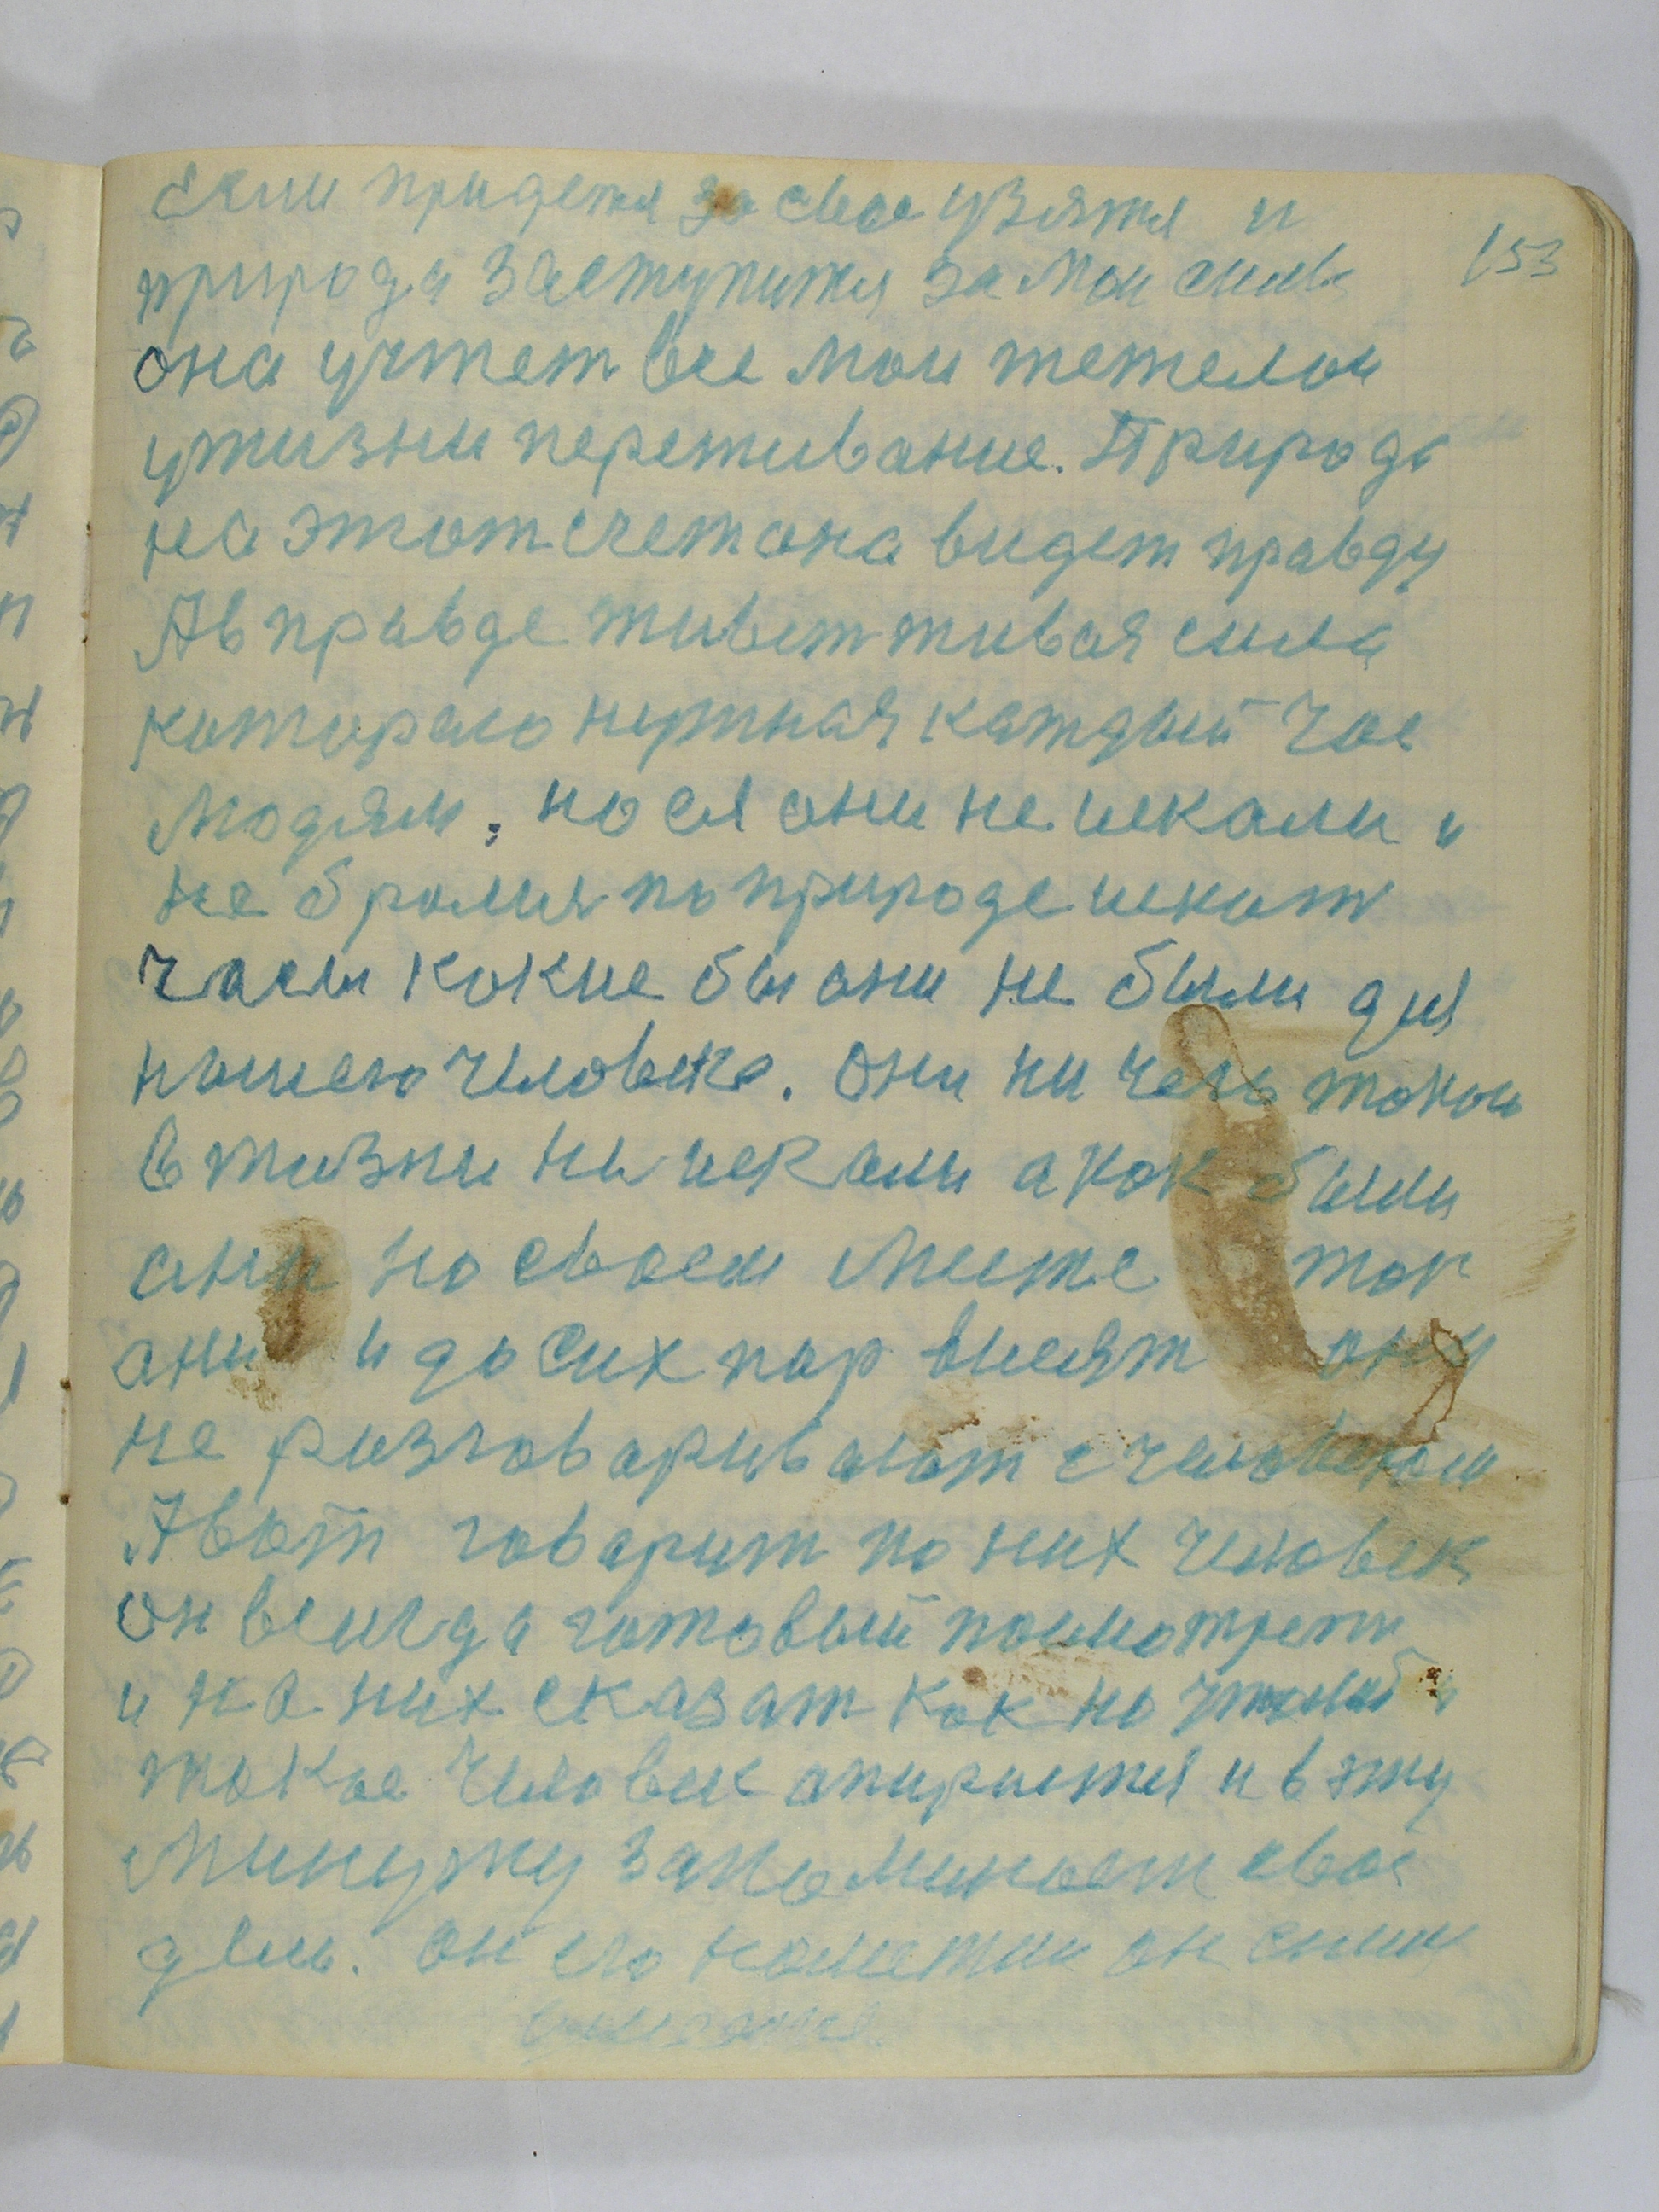 Если придетя за свае узятя и
природа заступитя за мои силы
153
она учтет все мои тежелыи
ужизни переживание. Природа
на этот счет она видет правду
Ав правде живет живая сила
которая нужная каждый час
людям. но ея они не искали и
не бролися по природе искат
часы кокие бы они не были для
нашего человека. Они ни чего токои
в жизни ни искали а кок были
они но своем мнсте ток
они и до сих пор висят они
не розговаривают с человеком
Авот говорит по них человек
он всигда готовый посмотреть
и на них сказат кок но
токое человек опираетя и в эту
минуту запоминает свое
дело. он его